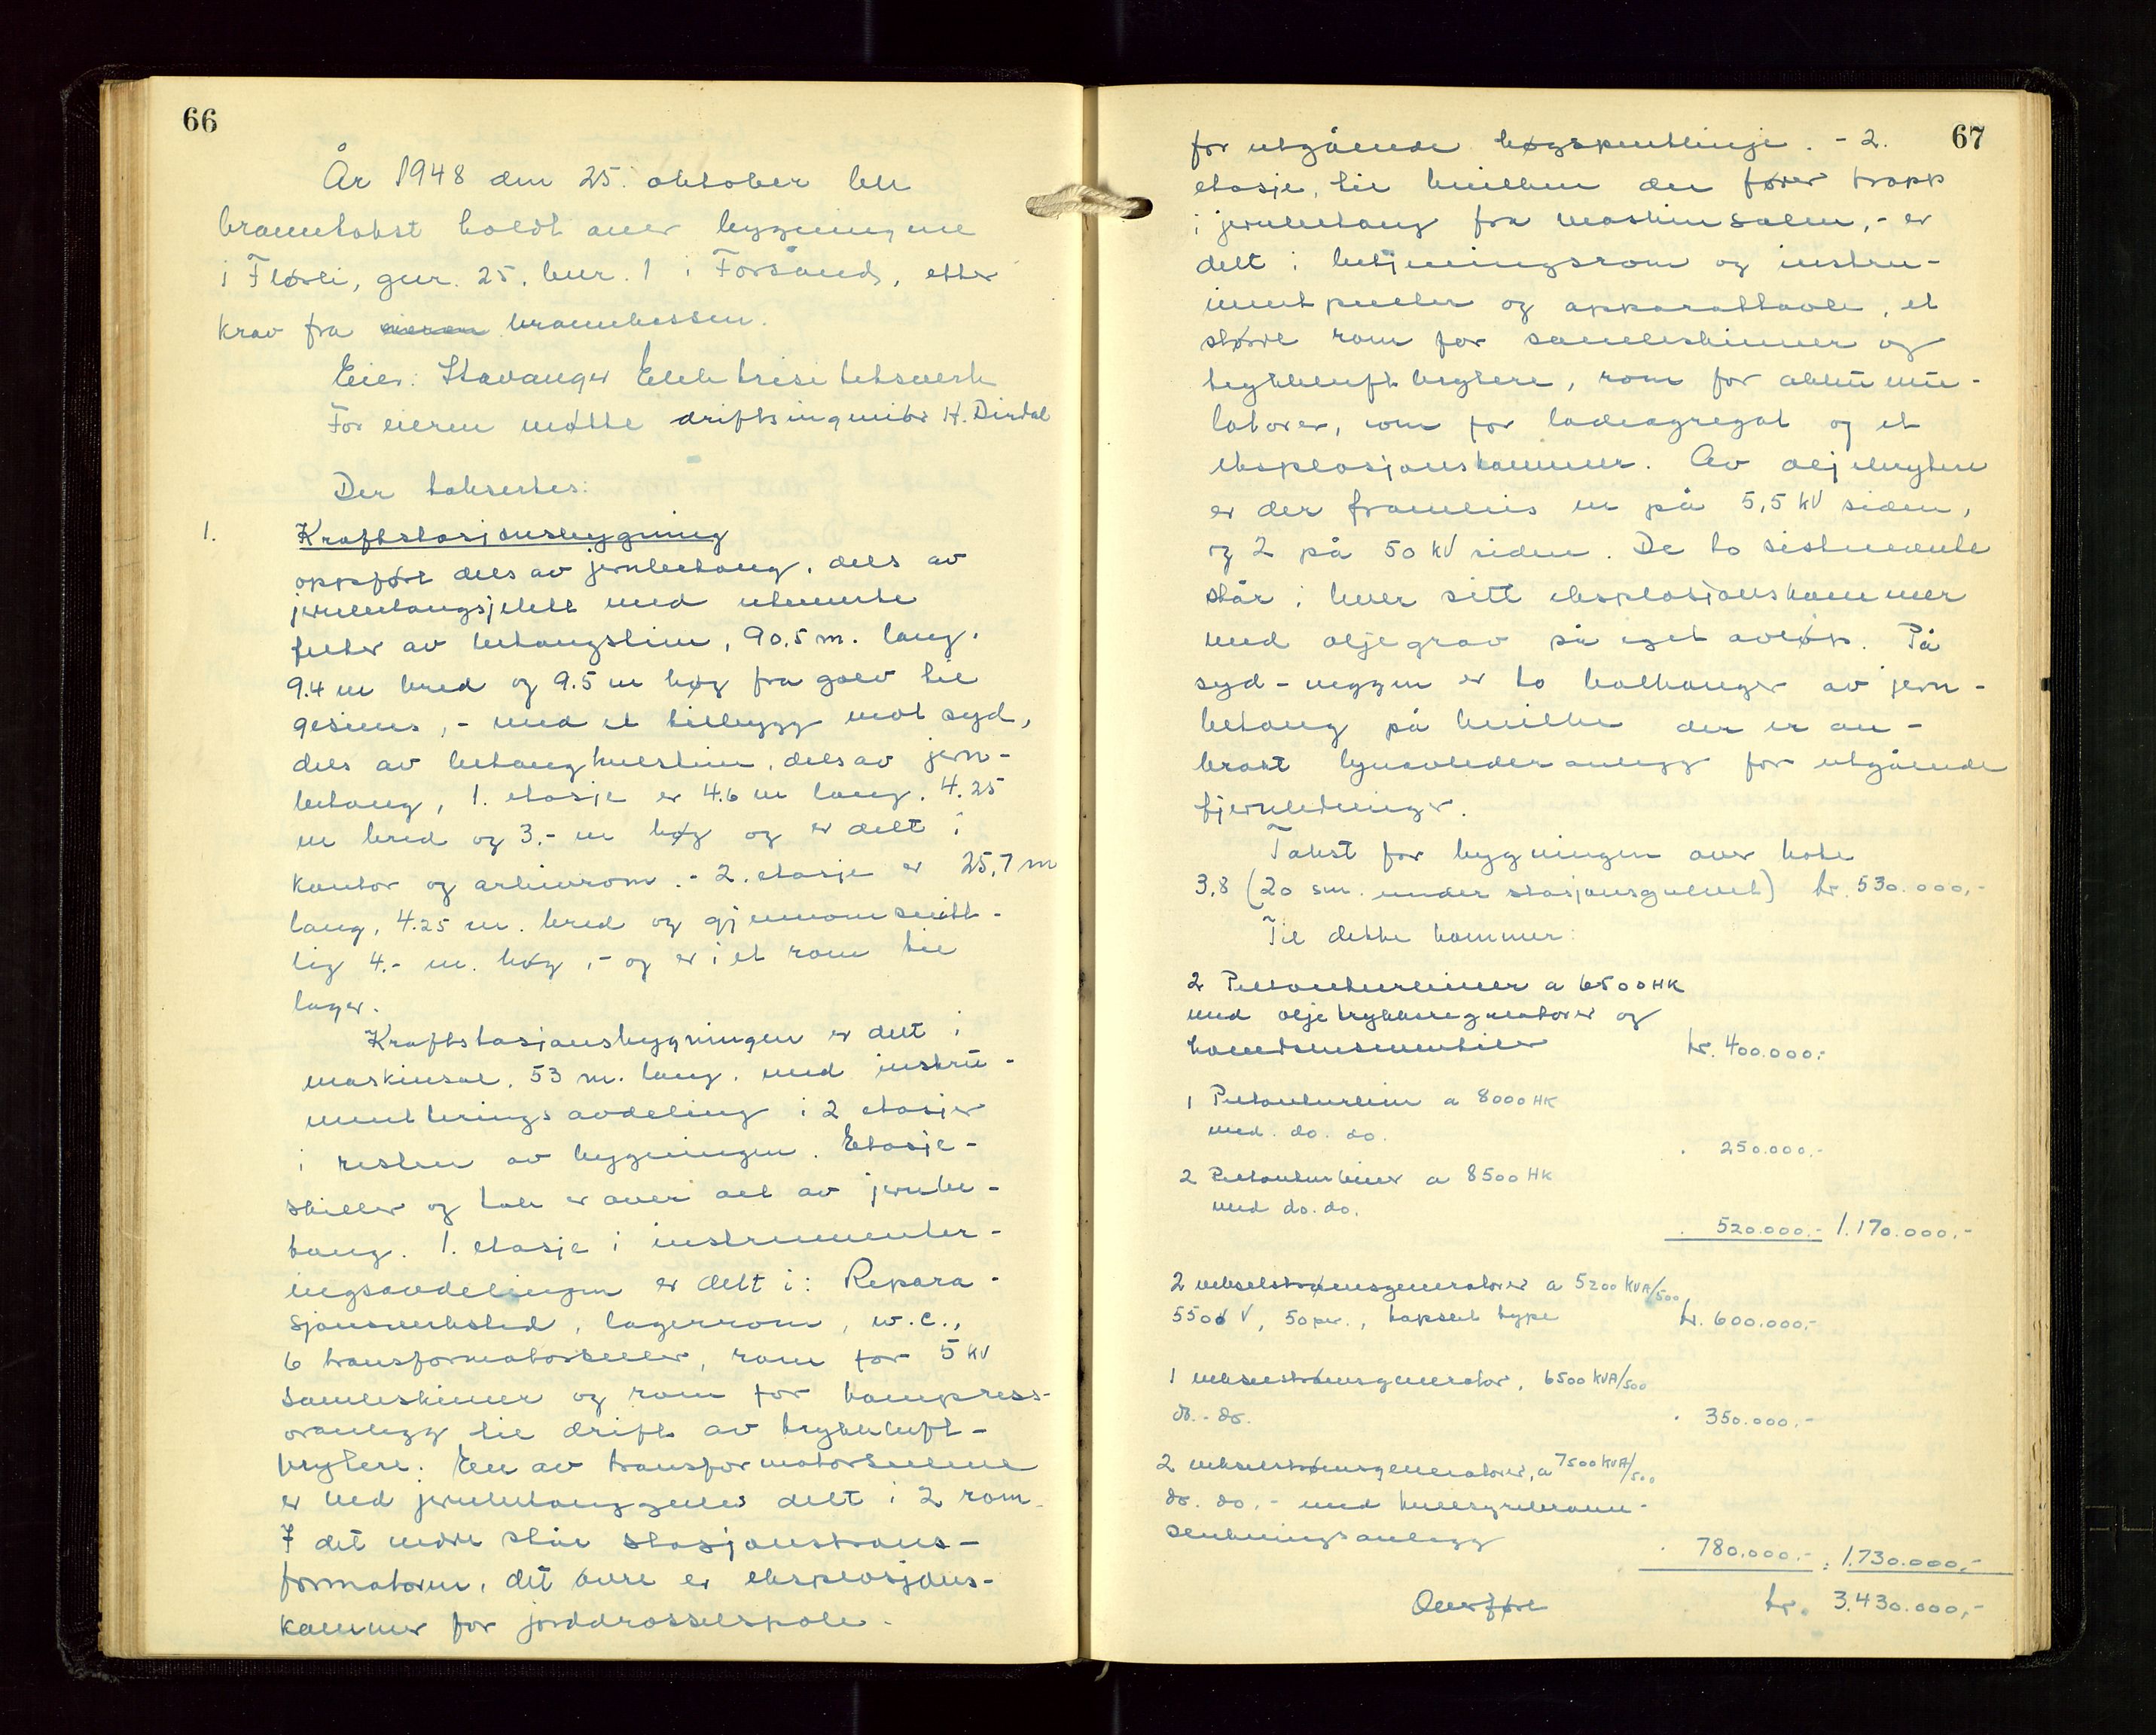 66
År 1948 den 25. oktober ble
branntakst holdt over bygningene
i Flørli, gnr. 25, bnr. 1 i Forsand, etter
krav fra eieren brannkassen.
Eier: Stavanger Elektrisitetsverk
For eieren møtte driftsingeniør H. Dirdal
Der taksertes:
1. Kraftstasjonsbygning
oppført dels av jernbetong, dels av
jernbetongsjelett med utmurte
felter av betongstein, 90,5 m. lang,
9.4 m bred og 9.5 m høg fra golv til
gesims, - med et tilbygg mot syd,
dels av betonghulstein, dels av jern-
betong, 1. etasje er 4.6 m lang, 4.25
m bred og 3.- m høg og er delt i
kontor og arkivrom. - 2. etasje er 25,7 m
lang, 4.25 m. bred og gjennomsnitt-
lig 4.- m. høg, - og er i et rom til
lager.
Kraftstasjonsbygningen er delt i
maskinsal, 53 m. lang, med instru-
mentteringsavdeling i 2 etasjer
i resten av bygningen. Etasje-
skiller og tak er over alt av jernbe-
tong. 1. etasje i instrumenter-
ingsavdelingen er delt i: Repara-
sjonsverksted, lagerrom, w.c.,
6 transformatorceller, rom for 5 kV
samleskinner og rom for kompress-
oranlegg til drift av trykkluft-
brytere. En av transformatorcellene
er ved jernbetonggulv delt i 2 rom.
I det nedre står stasjonstrans-
formatoren, det øvre er eksplosjons-
kammer for jorddrosselspole.
67
for utgående høgspentlinje. - 2.
etasje, til hvilken der fører trapp
i jernbetong fra maskinsalen, - er
delt i betjeningsrom og instru-
ment pulter og apparattavle, et
større rom for samleskinner og
trykkluftbrytere, rom for akkumu-
latorer, rom for ladeagregat og et
eksplosjonskammer. Av oljebrytere
er der framleis en på 5,5 kV siden,
og 2 på 50 kV siden. De to sistnevnte
står i hver sitt eksplosjonskammer
med oljegrav på eget avløp. På
syd-veggen er to balkonger av jern-
betong på hvilke der er an-
brakt lynavlederanlegg for utgående
fjernledninger.
Takst for bygningen over kote
3,8 (20 sm. under stasjonsgulvet) kr. 530.000,-
Til dette kommer:
2 Peltonturbiner a 6500 HK
med oljetrykkregulatorer og
kr. 400.000,-
1 Peltonturbin a 8000 HK
med. do. do.
" 250.000,-
2 Peltonturbiner a 8500 HK
med do. do.
" 520.000,- 1.170.000,-
2 vekselstrømsgeneratorer a 5200 KVA/500
5500 V, 50 per., kapslet type kr. 600.000,-
1 vekselstrømsgenerator, 6500 KVA/500
do. - do. " 350.000,-
2 vekselstrømsgeneratorer, a 7500 KVA/500
do. do. - med kullsyrebrann-
slukningsanlegg
" 780.000,- : 1.730.000,-
Overføre kr. 3.430.000,-